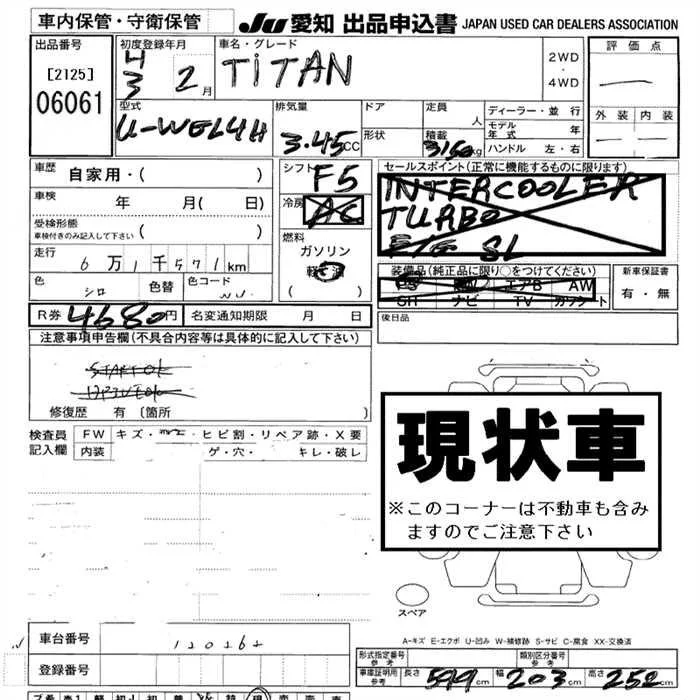 車内保管・守衛保管
JU 愛知 出品申込書 JAPAN USED CAR DEALERS ASSOCIATION
出品番号
[2125]
06061
初度登録年月
4
3 2月
車名・グレード
TITAN
2WD
・
4WD
評価点
外装 内装
型式
U-WGL4H
排気量
3.45CC
ドア
形状
定員
人
積載
3150kg
ディーラー・並行
モデル
年式 年
ハンドル 左・右
車歴
自家用・( )
車検 年 月( 日)
受検形態
車検付きのみ記入して下さい ( )
走行
6万1千571km
色
シロ
色替
色コード
シフト
F5
冷房
AC
燃料
ガソリン
軽油
( )
セールスポイント(正常に機能するものに限ります)
INTERCOOLER
TURBO
SL
装備品(純正品に限り○をつけてください)
エアB AW
ナビ TV
新車保証書
有・無
R券 4680円
名変通知期限 月 日
後日品
注意事項申告欄(不具合内容等は具体的に記入して下さい)
START OK
DRIVE OK
修復歴 有 〔箇所 〕
検査員
記入欄
FW キズ・ ・ヒビ割・リペア跡・X要
内装 ゲ・穴・ キレ・破レ
現状車
※このコーナーは不動車も含み
ますのでご注意下さい
スペア
A-キズ E-エクボ U-凹み W-補修跡 S-サビ C-腐食 XX-交換済
車台番号
120262
登録番号
形式指定番号
参考
類別区分番号
参考
車庫証明用
参考
長さ 599cm 幅 203cm 高さ 252cm